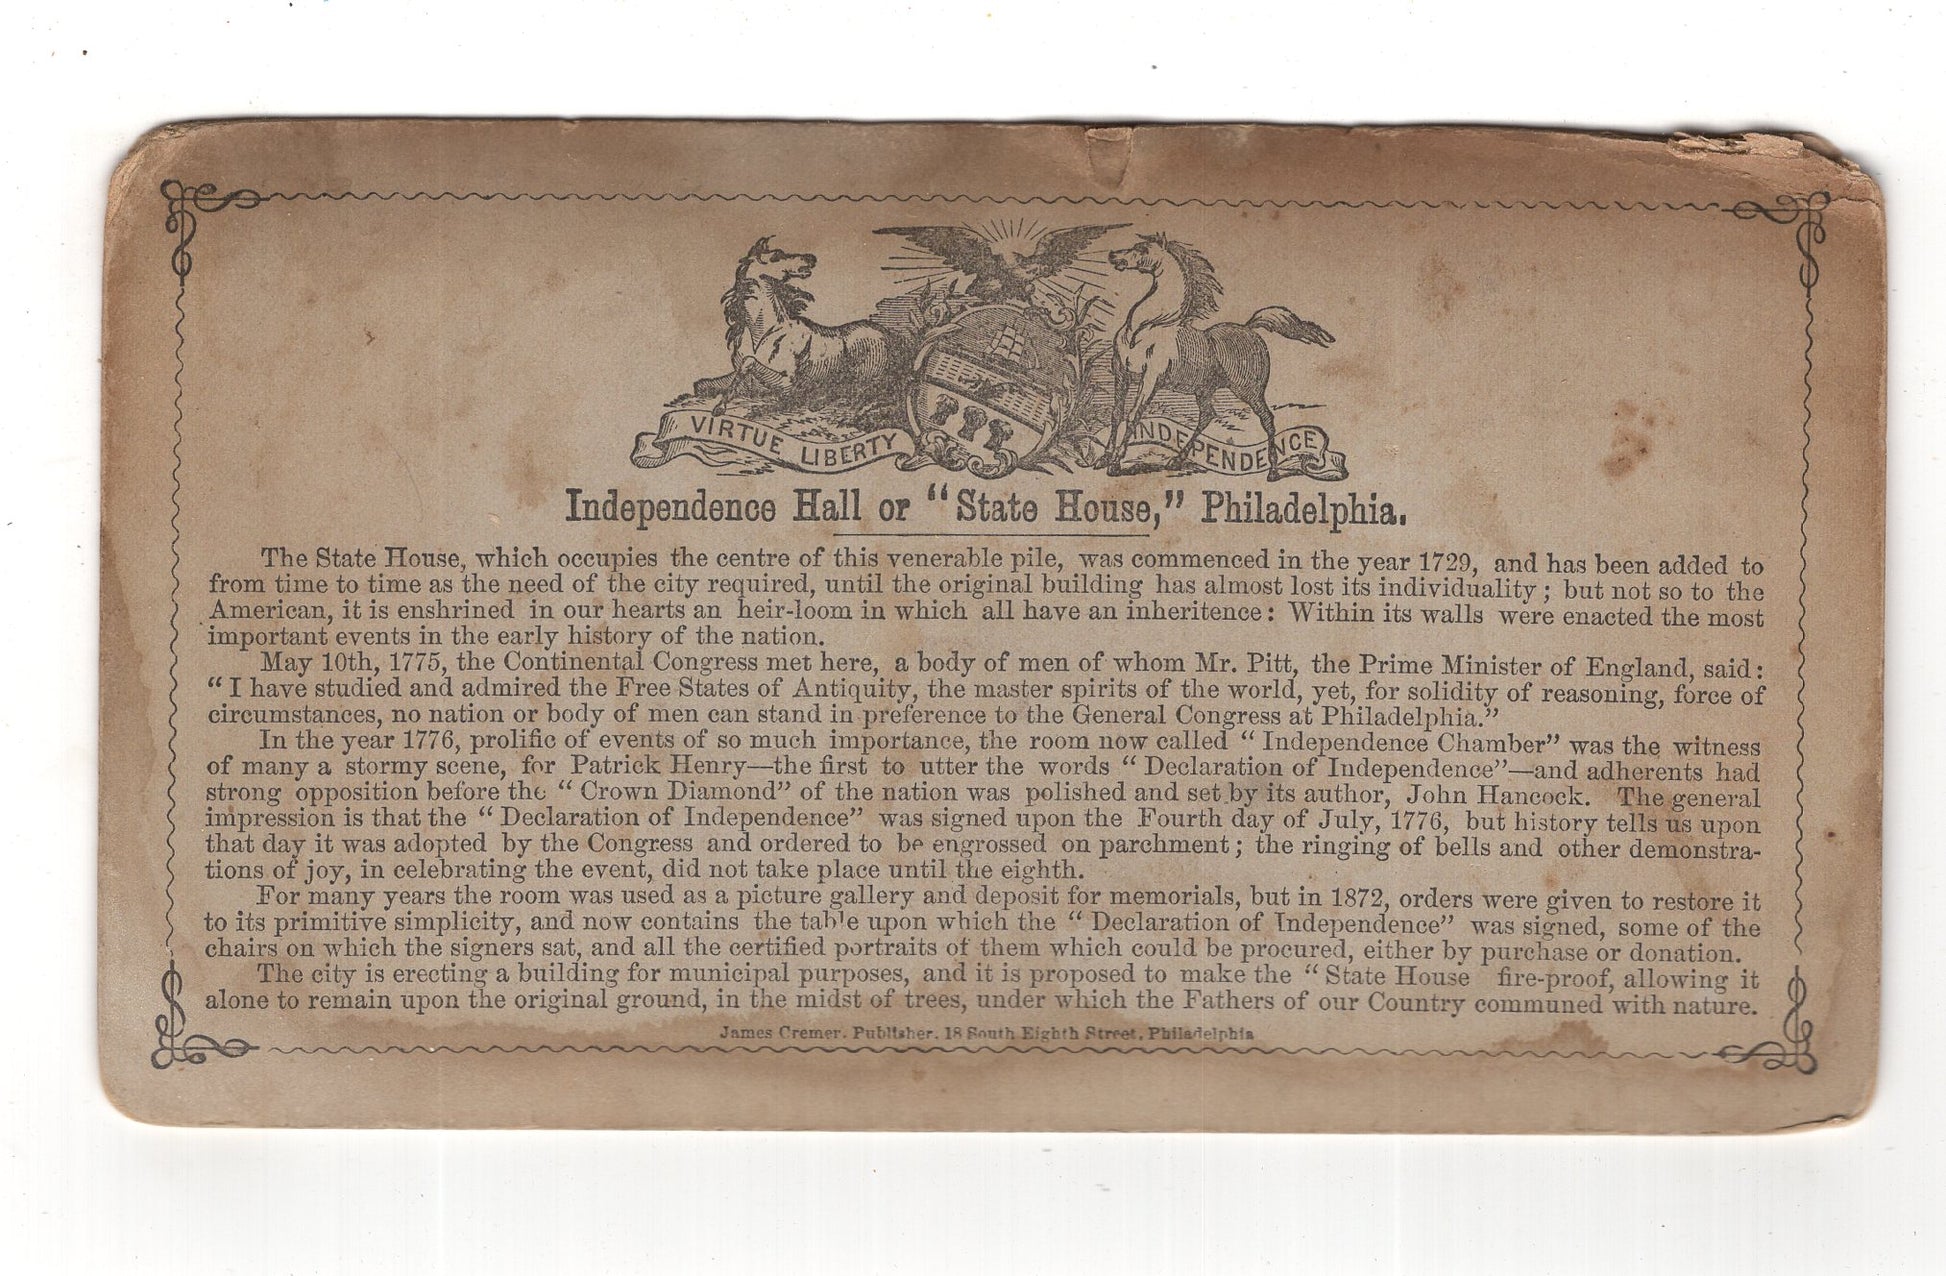 VIRTUE LIBERTY INDEPENDENCE
Independence Hall or “State House,” Philadelphia.
The State House, which occupies the centre of this venerable pile, was commenced in the year 1729, and has been added to
from time to time as the need of the city required, until the original building has almost lost its individuality; but not so to the
American, it is enshrined in our hearts an heir-loom in which all have an inheritence: Within its walls were enacted the most
important events in the early history of the nation.
May 10th, 1775, the Continental Congress met here, a body of men of whom Mr. Pitt, the Prime Minister of England, said:
“I have studied and admired the Free States of Antiquity, the master spirits of the world, yet, for solidity of reasoning, force of
circumstances, no nation or body of men can stand in preference to the General Congress at Philadelphia.”
In the year 1776, prolific of events of so much importance, the room now called “Independence Chamber” was the witness
of many a stormy scene, for Patrick Henry—the first to utter the words “Declaration of Independence”—and adherents had
strong opposition before the “Crown Diamond” of the nation was polished and set by its author, John Hancock. The general
impression is that the “Declaration of Independence” was signed upon the Fourth day of July, 1776, but history tells us upon
that day it was adopted by the Congress and ordered to be engrossed on parchment; the ringing of bells and other demonstra-
tions of joy, in celebrating the event, did not take place until the eighth.
For many years the room was used as a picture gallery and deposit for memorials, but in 1872, orders were given to restore it
to its primitive simplicity, and now contains the table upon which the “Declaration of Independence” was signed, some of the
chairs on which the signers sat, and all the certified portraits of them which could be procured, either by purchase or donation.
The city is erecting a building for municipal purposes, and it is proposed to make the “State House fire-proof, allowing it
alone to remain upon the original ground, in the midst of trees, under which the Fathers of our Country communed with nature.
James Cremer, Publisher, 18 South Eighth Street, Philadelphia